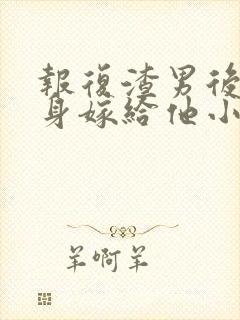 報復渣男後
身嫁給他小
羊啊羊